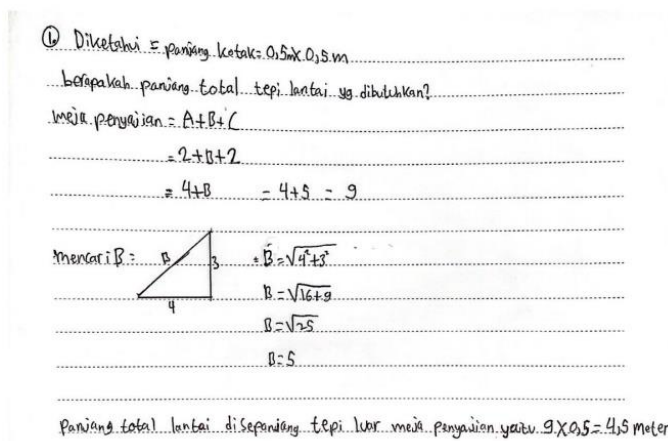 ① Diketahui = panjang kotak = 0,5m x 0,5 m
berapakah panjang total tepi lantai yg dibutuhkan?
Meja penyajian = A+B+C
= 2+B+2
= 4+B = 4+5 = 9
mencari B : B 3 4 = B = √4²+3²
B = √16+9
B = √25
B = 5
Panjang total lantai disepanjang tepi luar meja penyajian yaitu 9 x 0,5 = 4,5 Meter